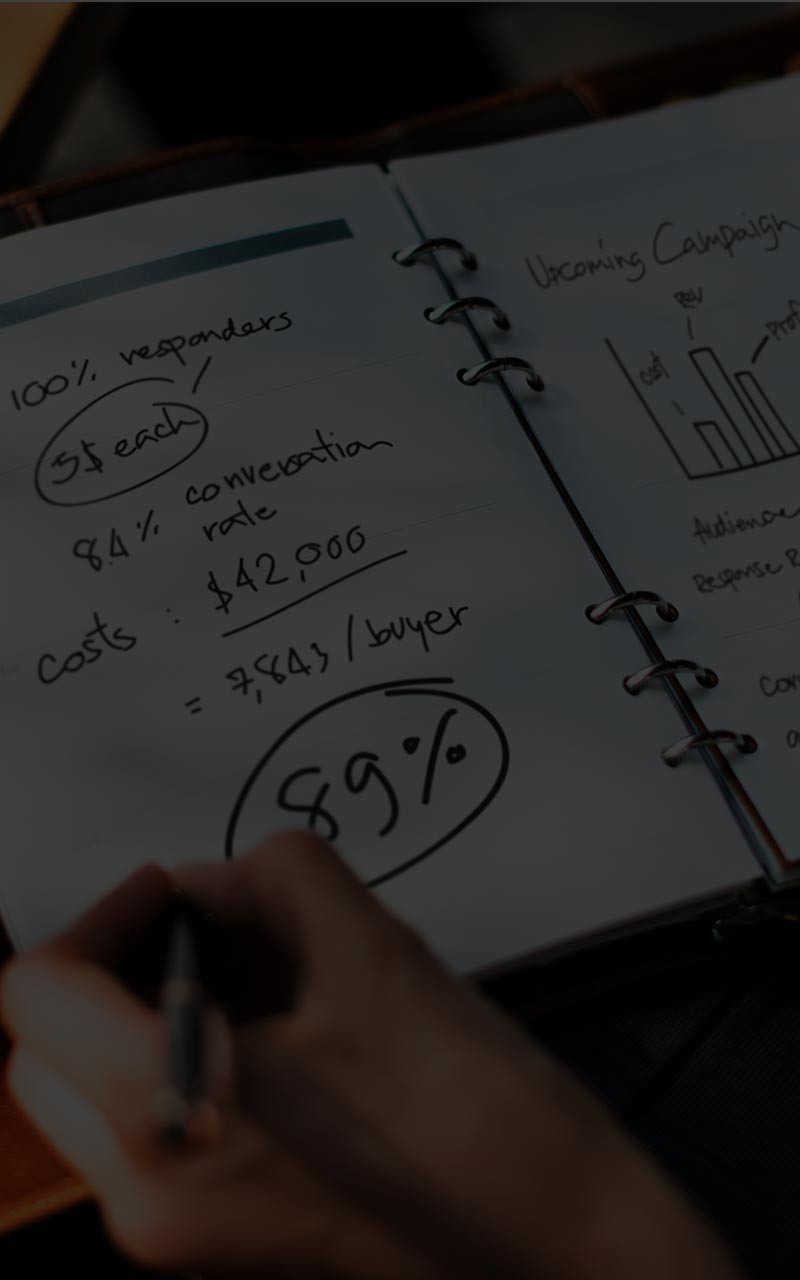 100% responders
5$ each
8.4% conversation
rate
costs : $42,000
= 7,843 / buyer
89%
Upcoming Campaign
Rev
cost
Audience
Response